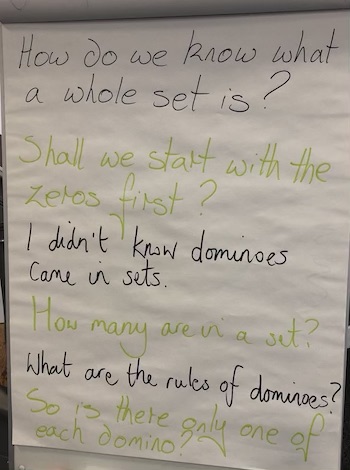 How do we know what
a whole set is?
Shall we start with the
zeros first?
I didn't know dominoes
Came in sets.
How many are in a set?
What are the rules of dominoes?
So is there only one of
each domino?